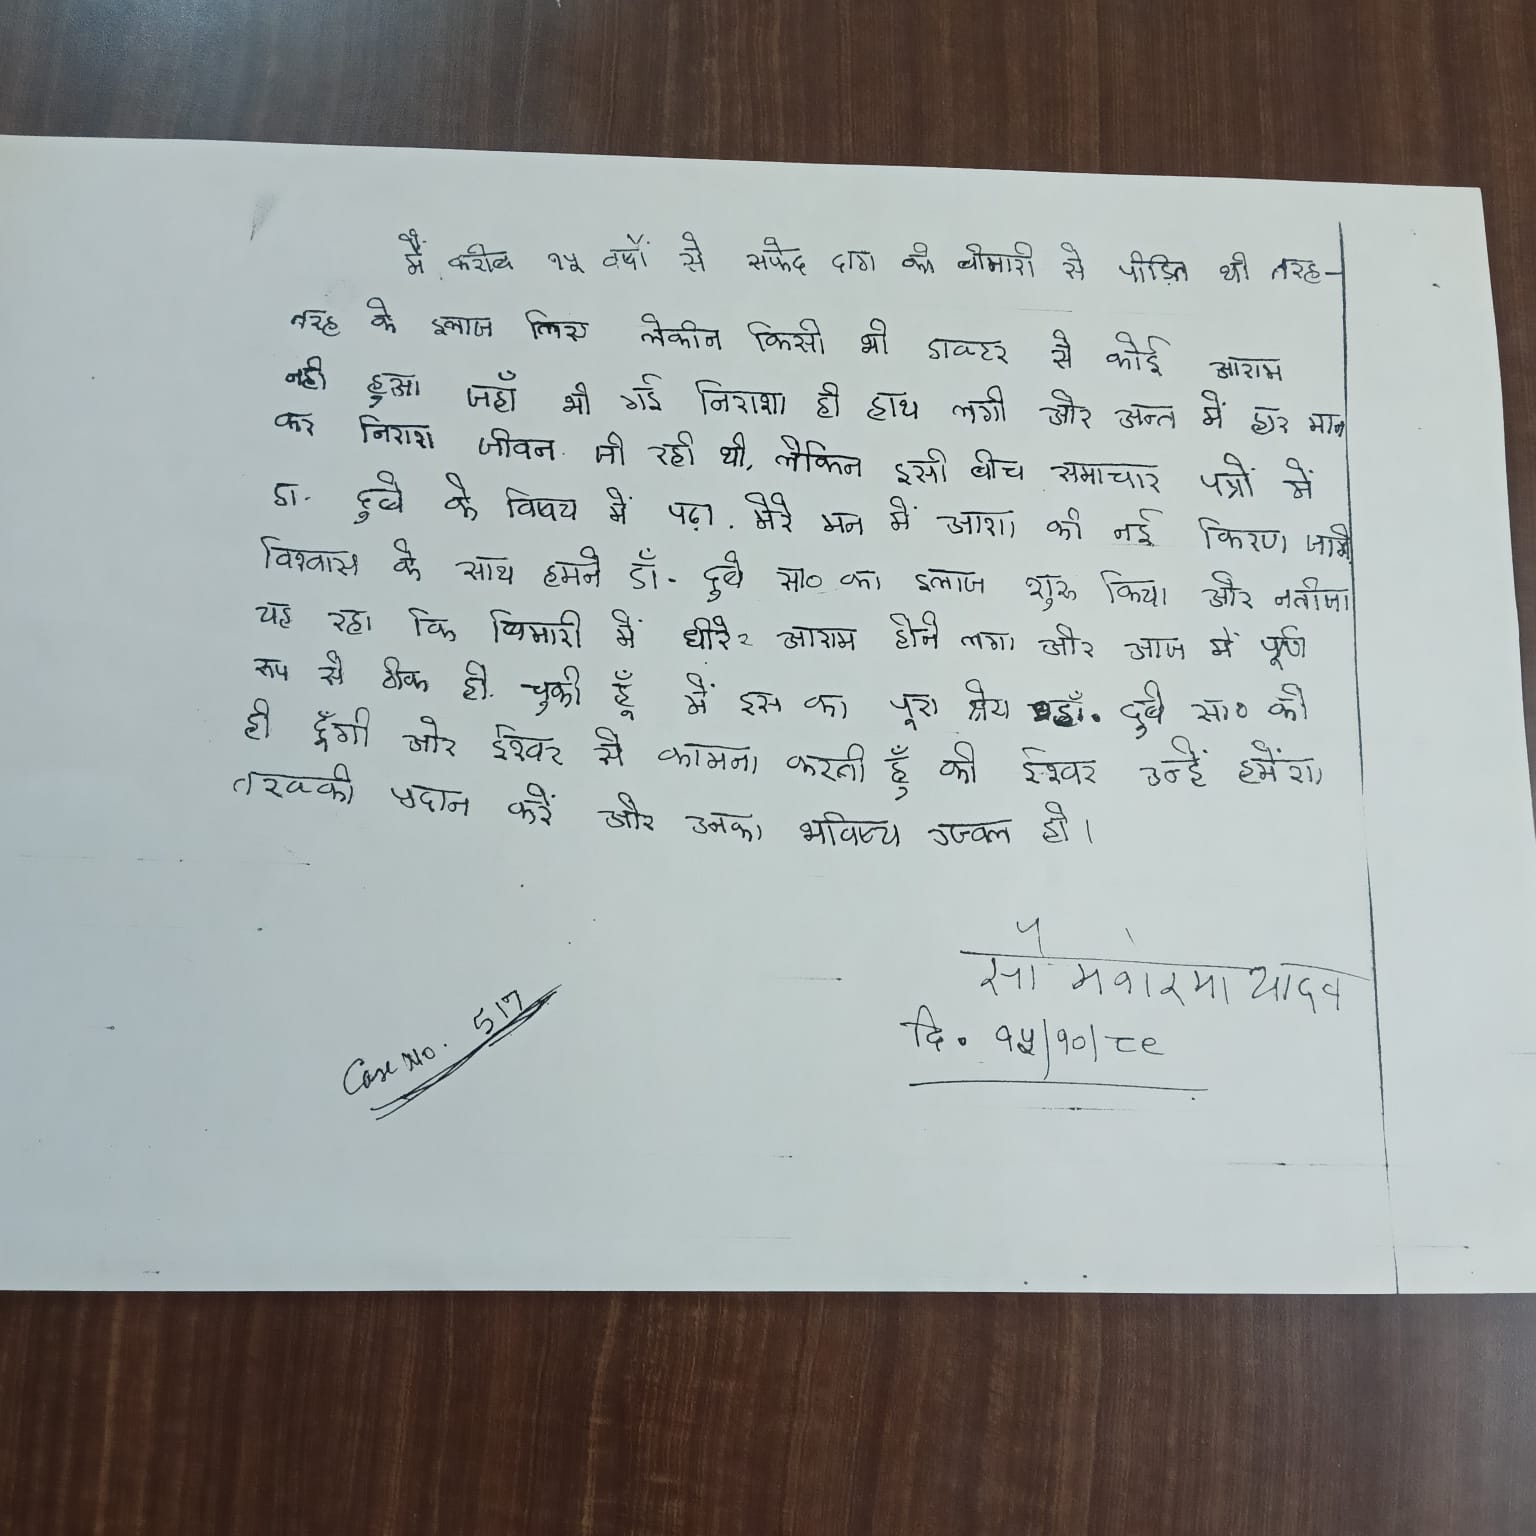 मैं करीब १५ वर्षों से सफेद दाग की बीमारी से पीड़ित थी तरह-
तरह के इलाज लिए लेकीन किसी भी डाक्टर से कोई आराम
नही हुआ जहाँ भी गई निराशा ही हाथ लगी और अन्त में हार मान
कर निराश जीवन जी रही थी, लेकिन इसी बीच समाचार पत्रों में
डा. दुबे के विषय में पढ़ा. मेरे मन में आशा की नई किरण जागी
विश्वास के साथ हमने डॉ. दुबे सा० का इलाज शुरू किया और नतीजा
यह रहा कि बिमारी में धीरे२ आराम होने लगा और आज में पूर्ण
रूप से ठीक हो चुकी हूँ में इस का पूरा श्रेय डॉ. दुबे सा० को
ही दूँगी और ईश्वर से कामना करती हूँ की ईश्वर उन्हें हमेंशा
तरक्की प्रदान करें और उनका भविष्य उज्वल हो।
सौ यादव
दि. १५/१०/८९
Case No. 517